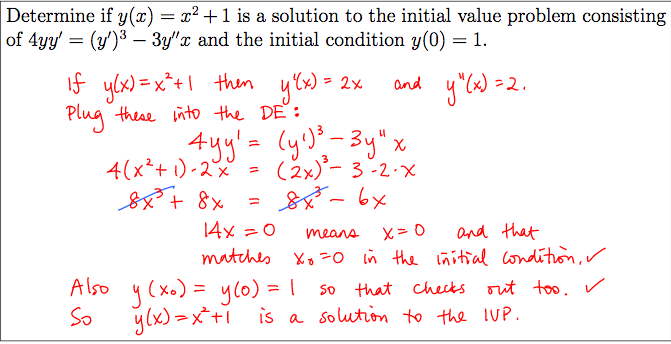 Determine if y(x) = x² + 1 is a solution to the initial value problem consisting
of 4yy′ = (y′)³ − 3y″x and the initial condition y(0) = 1.
If y(x) = x²+1 then y'(x) = 2x and y"(x) = 2.
Plug these into the DE:
4yy' = (y')³ - 3y" x
4(x²+1)·2x = (2x)³ - 3·2·x
8x³ + 8x = 8x³ - 6x
14x = 0 means x = 0 and that
matches x₀=0 in the initial condition. ✓
Also y(x₀) = y(0) = 1 so that checks out too. ✓
So y(x) = x²+1 is a solution to the IVP.